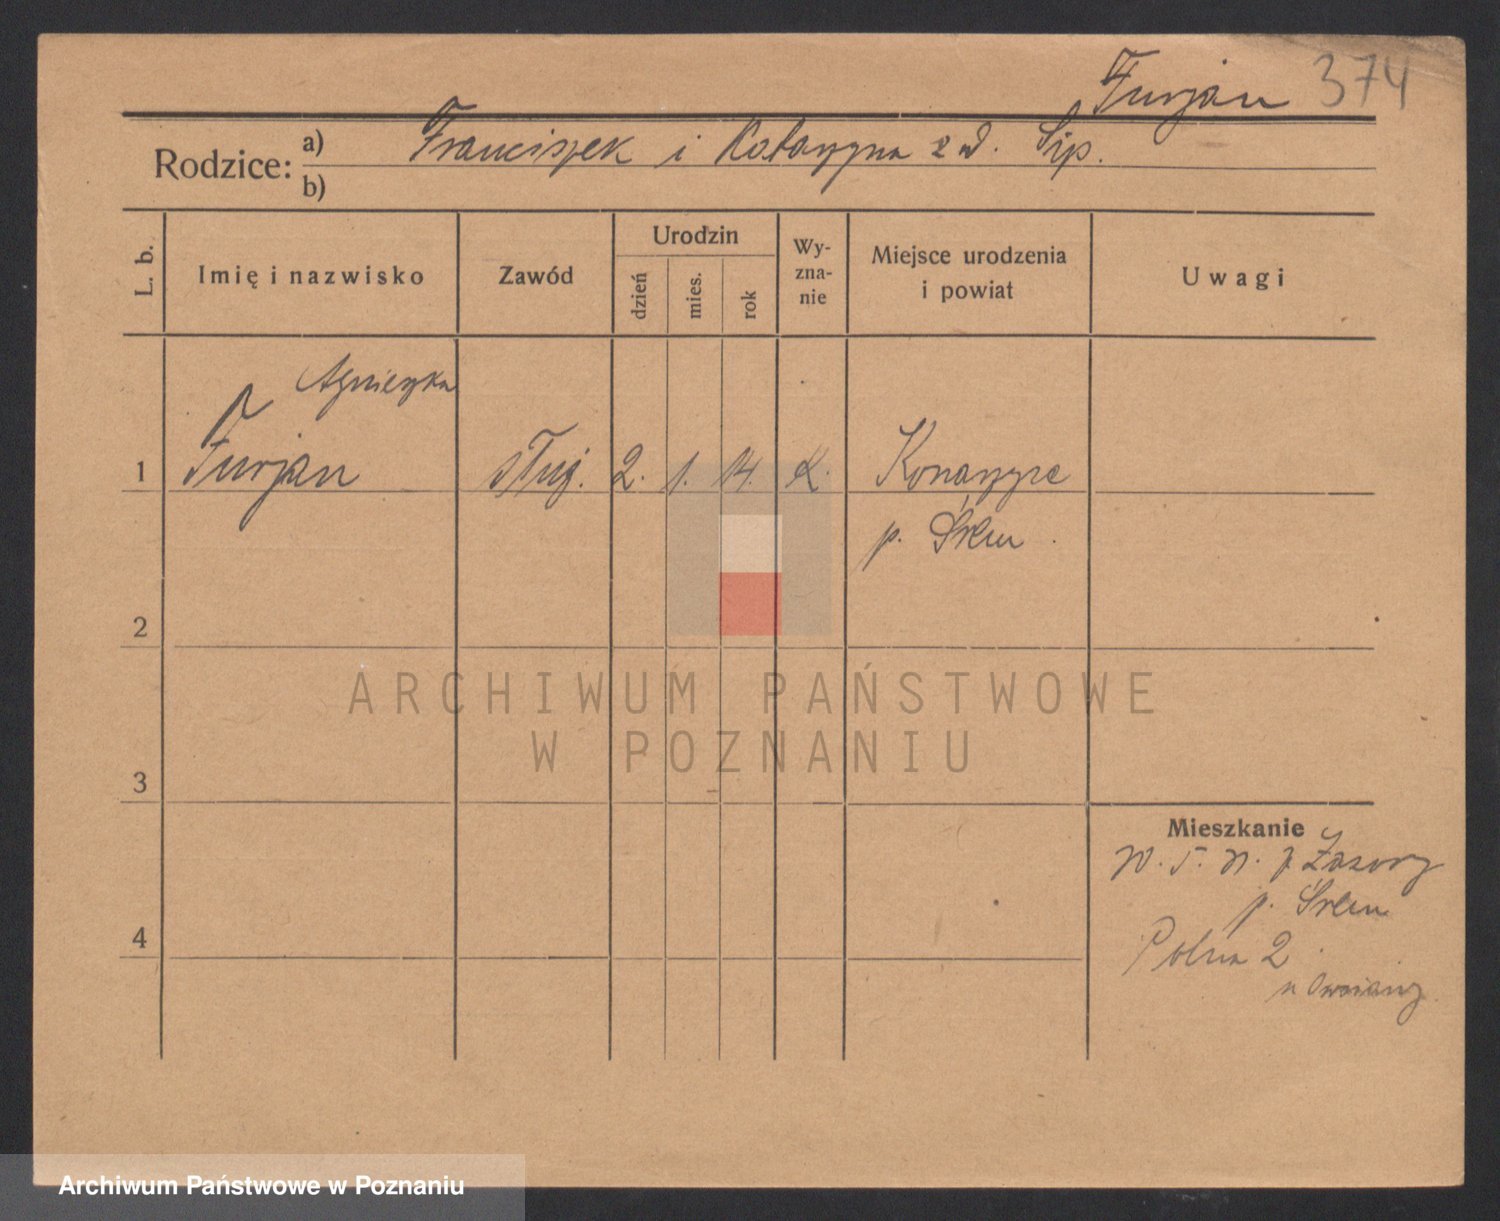 Furjan 374
Rodzice: a) Franciszek i Katarzyna z d. Sip.
b)
L. b.
Imię i nazwisko
Zawód
Urodzin
dzień
mies.
rok
Wy-
zna-
nie
Miejsce urodzenia
i powiat
Uwagi
Agnieszka
1 Furjan służ. 2. 1. 14. K. Konarzyce
p. Śrem
2
3
4
Mieszkanie
Żazory
p. Śrem
Polna 2
ARCHIWUM PAŃSTWOWE
W POZNANIU
Archiwum Państwowe w Poznaniu